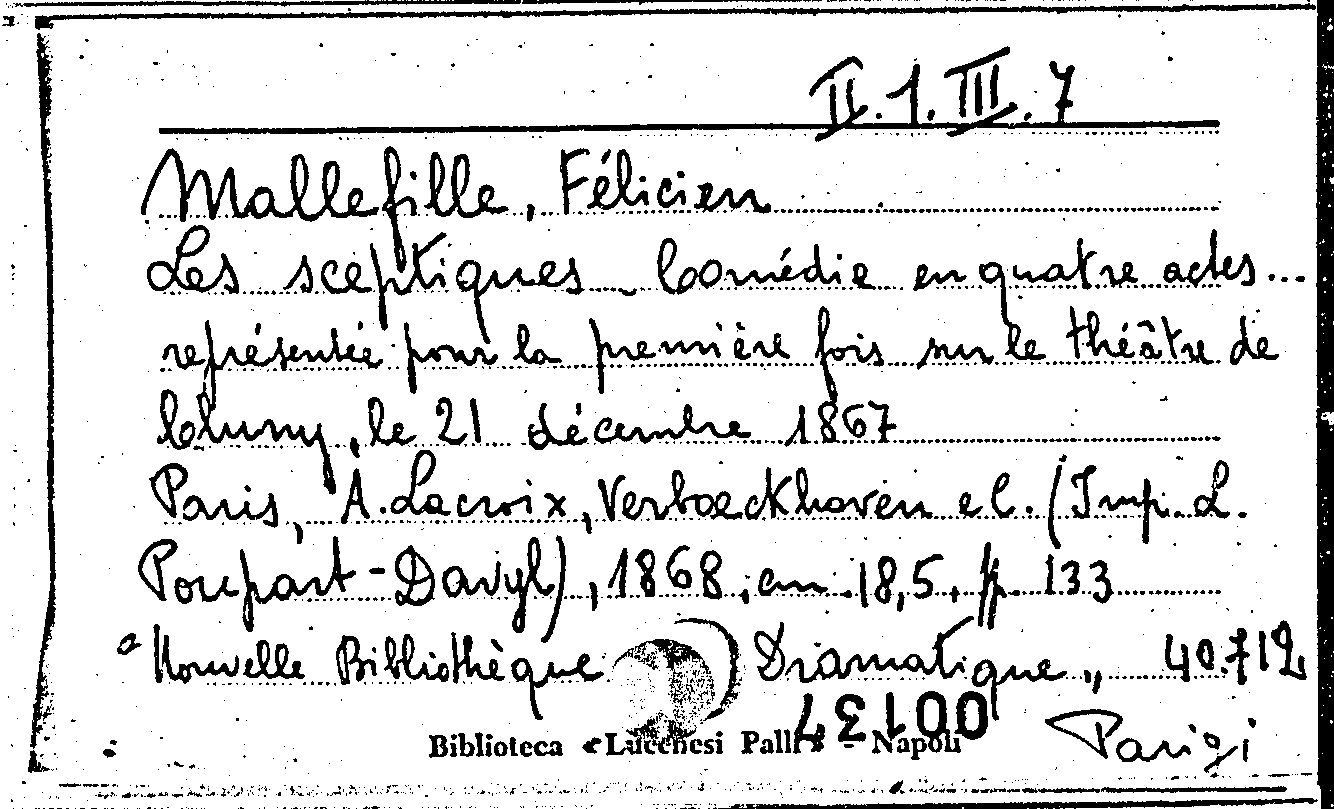 II.1.III.7
Mallefille, Félicien
Les sceptiques - Comédie en quatre actes...
représentée pour la première fois sur le théâtre de
Cluny, le 21 décembre 1867
Paris, A. Lacroix, Verboeckhoven e C. (Imp. L.
Poupart-Davyl), 1868, cm. 18,5, p. 133
"Nouvelle Bibliothèque Dramatique„ 40.712
00137
Biblioteca «Lucchesi Palli» - Napoli
Parigi